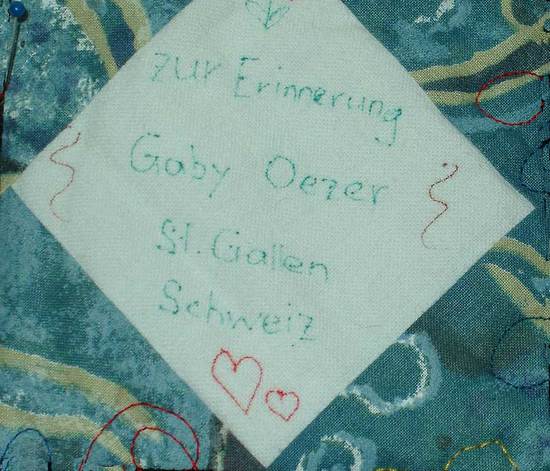 zur Erinnerung
Gaby Oezer
St. Gallen
Schweiz